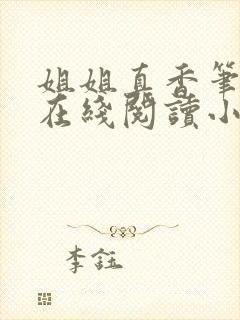 姐姐真香筆
在綫閱讀小
李鈺